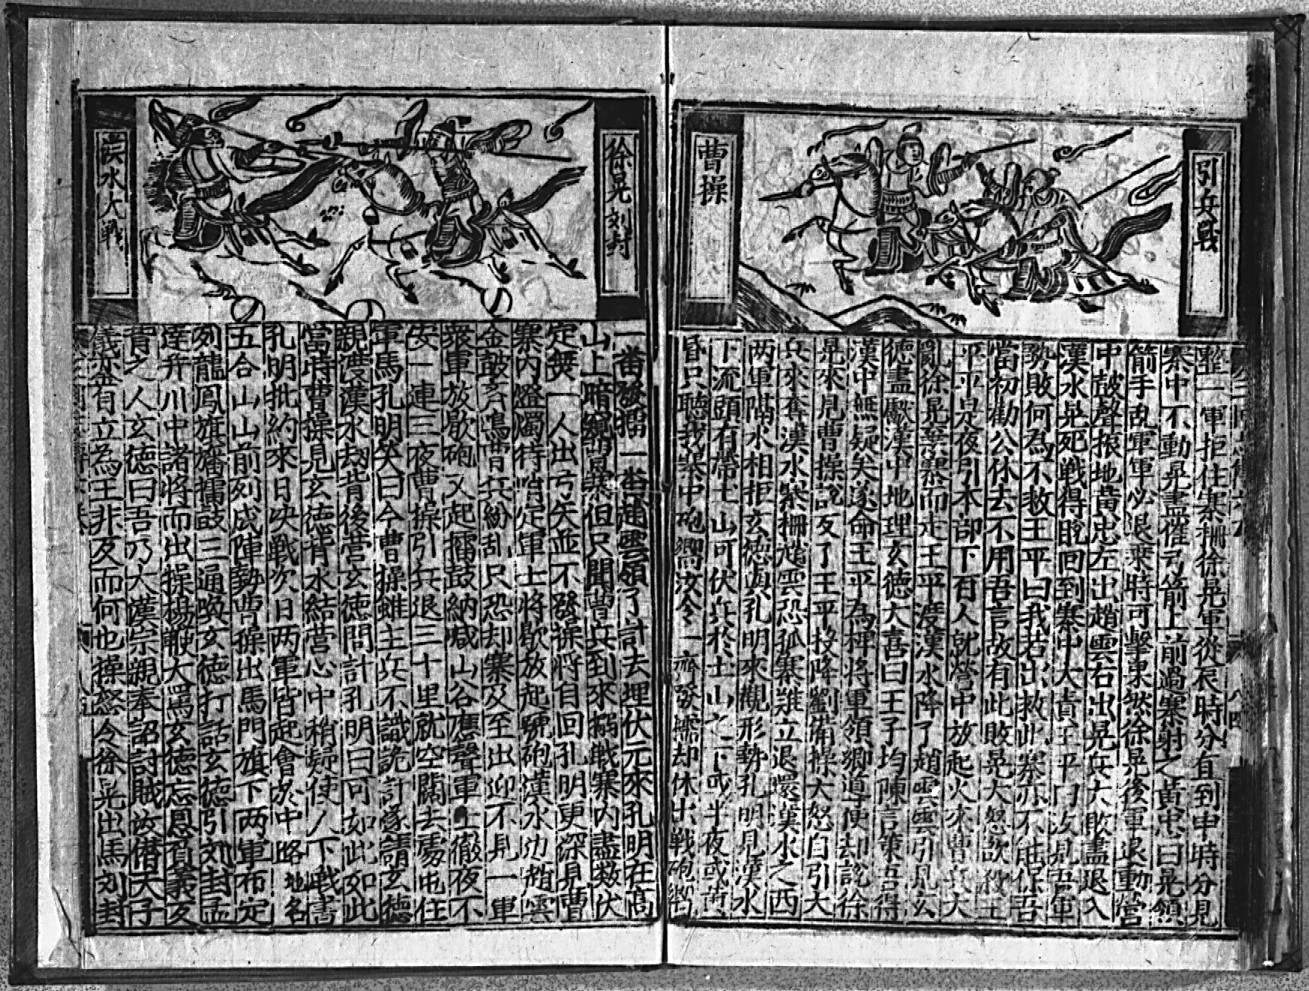 引兵戰
曹操
整一軍拒住寨柵徐晃軍從辰時分直到申時分見
寨中不動晃盡催弓箭上前過寨射之黃忠曰晃領
箭手乱軍軍必退乘時可擊果然徐晃後軍退動營
中鼓聲振地黃忠左出趙雲右出晃兵大敗盡退入
漢水晃死戰得脫回到寨中大責王平曰汝見吾軍
勢敗何為不救王平曰我若出救此寨亦不能保吾
當初勸公休去不用吾言故有此敗晃大怒欲殺王
平平是夜引本部下百人就營中放起火來曹兵大
亂徐晃棄寨而走王平渡漢水降了趙雲雲引見玄
德盡獻漢中地理玄德大喜曰王子均陳言策吾得
漢中無疑矣遂命王平為裨將軍領鄉導使却說徐
晃來見曹操說反了王平投降劉備操大怒自引大
兵來奪漢水柵趙雲恐孤寨難立退還漢水之西
两軍隔水相拒玄德與孔明來觀形勢孔明見漢水
上流頭有帶土山可伏兵於土山之下或半夜或黃
昏只聽我寨中砲响汝令一齊發擂却休出戰砲响
徐晃刘封
漢水大戰
一番發擂一番趙雲領了計去埋伏元來孔明在高
山上暗窺曹寨但只聞曹兵到來搦戰寨內盡數伏
定無一人出弓矢並不發操將自回孔明更深見曹
寨內燈燭待哨定軍士將歇放起號砲漢水边趙雲
金鼓齐鳴曹兵紛乱只恐却寨及至出迎不見一軍
衆軍放歇砲又起擂鼓納喊山谷應聲軍士徹夜不
安一連三夜曹操引兵退三十里就空闊去處屯住
軍馬孔明笑曰今曹操雖主兵不識詭計遂請玄德
親渡漢水刼背後營玄德問計孔明曰可如此如此
當時曹操見玄德背水結營心中稍疑使人下戰書
孔明批約來日决戰次日两軍皆起會於中略地名
五合山山前列成陣勢曹操出馬門旗下两軍布定
列龍鳳旗旛擂鼓三通喚玄德打話玄德引刘封孟
達并川中諸將而出操揚鞭大罵玄德忘恩負義反
賣之人玄德曰吾乃大漢宗親奉詔討賊汝僭天子
儀鑾自立為王非反而何也操怒令徐晃出馬刘封